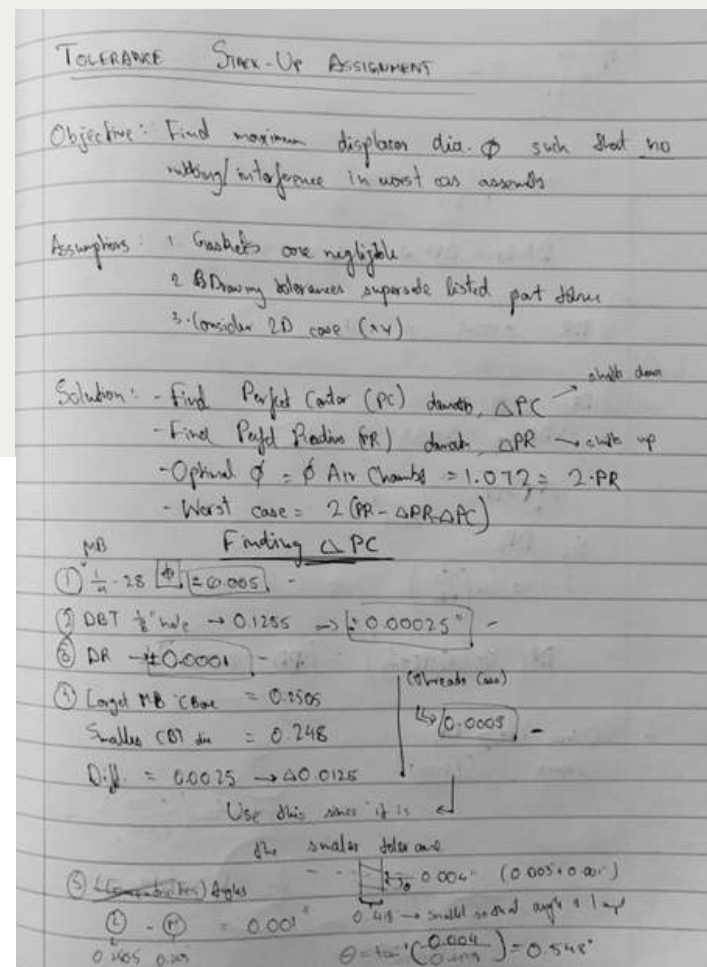 TOLERANCE STACK-UP ASSIGNMENT
Objective: Find maximum displacer dia. ϕ such that no
rubbing/interference in worst cas assembly
Assumptions: 1. Gaskets are negligible
2 Drawing tolerances supersede listed part
3. Consider 2D case (xy)
shifts down
Solution: - Find Perfect Center (PC) ΔPC
- Find Perfect Radius (PR) ΔPR → shifts up
- Optimal ϕ = ϕ Air Chamber = 1.072 = 2·PR
- Worst case = 2(PR - ΔPR-ΔPC)
Finding ΔPC
MB
① 1/4"-28 ±0.005 -
② DBT 1/8" hole → 0.1285 → ± 0.00025" -
③ DR → ±0.0001 -
④ Largest MB CBore = 0.2505
(threads case)
Smalles CBT die = 0.248
↳ 0.0005 -
Diff. = 0.0025 → Δ0.0125
Use this since it is
the smaller tolerance
0.004" (0.005+0.001)
⑤ Angles
= 0.001"
0.418 → smallest so that angle is largest
0.2505
θ = tan⁻¹(0.004/0.418) = 0.548°